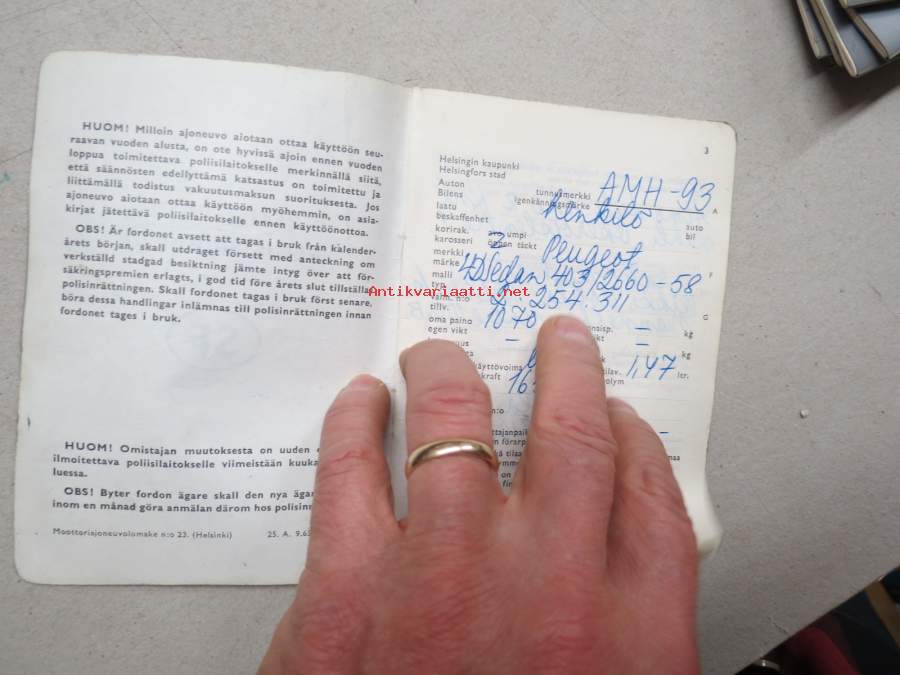 HUOM! Milloin ajoneuvo aiotaan ottaa käyttöön seu-
raavan vuoden alusta, on ote hyvissä ajoin ennen vuoden
loppua toimitettava poliisilaitokselle merkinnällä siitä,
että säännösten edellyttämä katsastus on toimitettu ja
liittämällä todistus vakuutusmaksun suorituksesta. Jos
ajoneuvo aiotaan ottaa käyttöön myöhemmin, on asia-
kirjat jätettävä poliisilaitokselle ennen käyttöönottoa.
OBS! Är fordonet avsett att tagas i bruk från kalender-
årets början, skall utdraget försett med anteckning om
verkställd stadgad besiktning jämte intyg över att för-
säkringspremien erlagts, i god tid före årets slut tillställas
polisinrättningen. Skall fordonet tagas i bruk först senare,
böra dessa handlingar inlämnas till polisinrättningen innan
fordonet tages i bruk.
HUOM! Omistajan muutoksesta on uuden
ilmoitettava poliisilaitokselle viimeistään kuuka
luessa.
OBS! Byter fordon ägare skall den nya ägar
inom en månad göra anmälan därom hos polisinr
Moottoriajoneuvolomake n:o 23. (Helsinki) 25. A. 9.6
3
Helsingin kaupunki
Helsingfors stad
Auton tunnusmerkki AMH-93 A
Bilens igenkänningsmärke
laatu Henkilö auto
beskaffenhet bil
korirak. avo umpi
karosseri öppen täckt
merkki Peugeot
märke
malli 4D Sedan 403/2660-58 F
typ
valm. n:o 2.254.311
tillv. G
oma paino 1070 kg
egen vikt
kg
käyttövoima 1,47 ltr.
kraft
n:o
Antikvariaatti.net